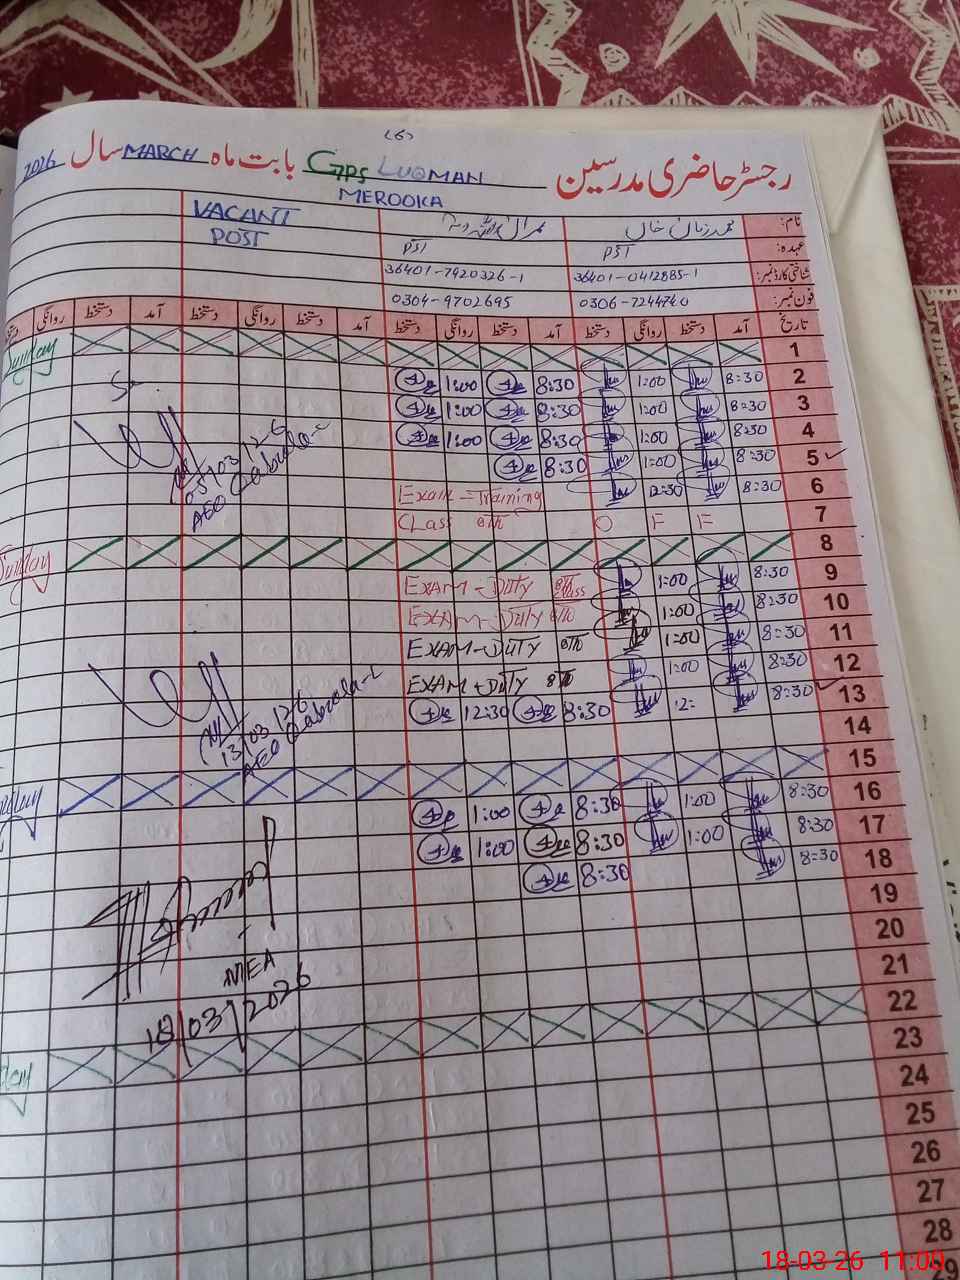 (6)
رجسٹر حاضری مدرسین GPS LUQMAN بابت ماہ MARCH سال 2026
MEROOKA
نام: محمد زمان خان عمران اللہ VACANT
عہدہ: PST PST POST
شناختی کارڈ نمبر: 36401-0412885-1 36401-7920326-1
فون نمبر: 0306-7244740 0304-9702695
تاریخ آمد دستخط روانگی دستخط آمد دستخط روانگی دستخط آمد دستخط دستخط آمد دستخط روانگی
1 Sunday
2 8:30 1:00 8:30 1:00
3 8:30 1:00 8:30 1:00
4 8:30 1:00 8:30 1:00
5 8:30 1:00 8:30
6 8:30 12:30 Exam - Training
7 F F O CLass 8th
05/03/26
AEO Qabola-I
8 Sunday
9 8:30 1:00 EXAM - DUTY 8th Class
10 8:30 1:00 EXAM - DUTY 8th
11 8:30 1:00 EXAM - DUTY 8th
12 8:30 1:00 EXAM - DUTY 8th
13 8:30 12: 8:30 12:30
13/03/26
AEO Qabola-I
14
15 Sunday
16 8:30 1:00 8:30 1:00
17 8:30 1:00 8:30 1:00
18 8:30 8:30
19
20
21
MEA
18/03/2026
22
23
24
25
26
27
28
29
18-03-26 11:00